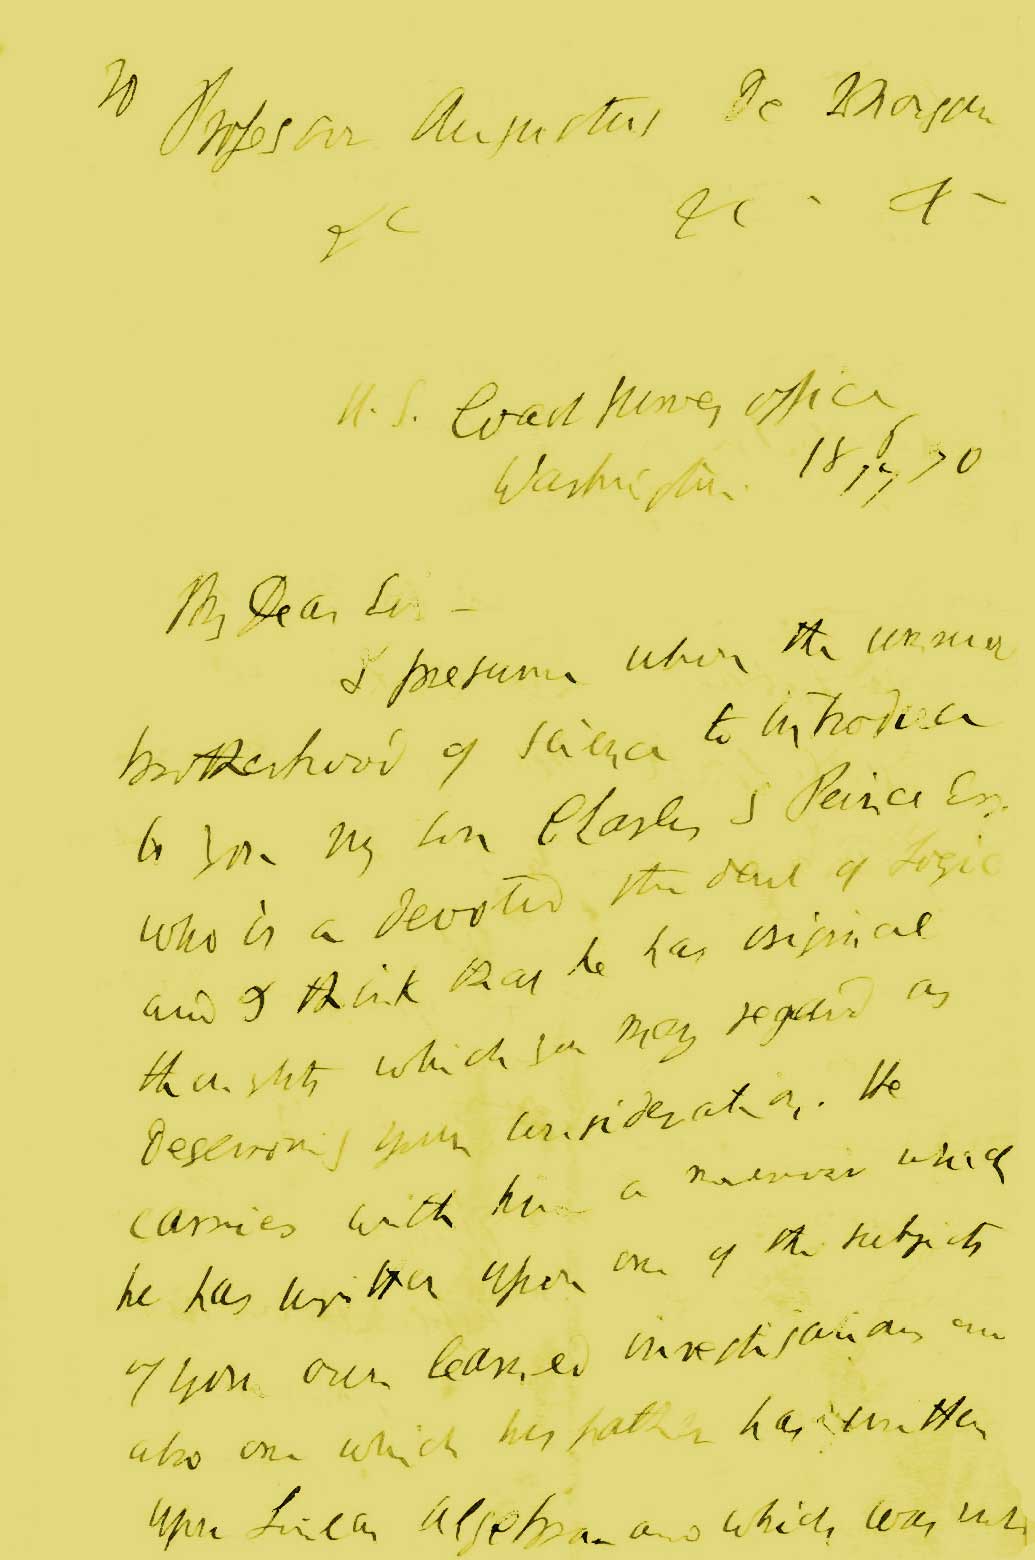 To
Professor Augustus De Morgan
&c &c. &-
U.S. Coast Survey office
Washington. 18 70
My Dear Sir -
I presume upon the common
brotherhood of science to introduce
to you my son Charles S Peirce Esq.
who is a devoted student of Logic
and I think that he has original
thoughts which you may regard as
deserving your consideration. He
carries with him a memoir which
he has written upon one of the subjects
of your own learned investigations and
also one which his father has written
upon Linear Algebra and which was